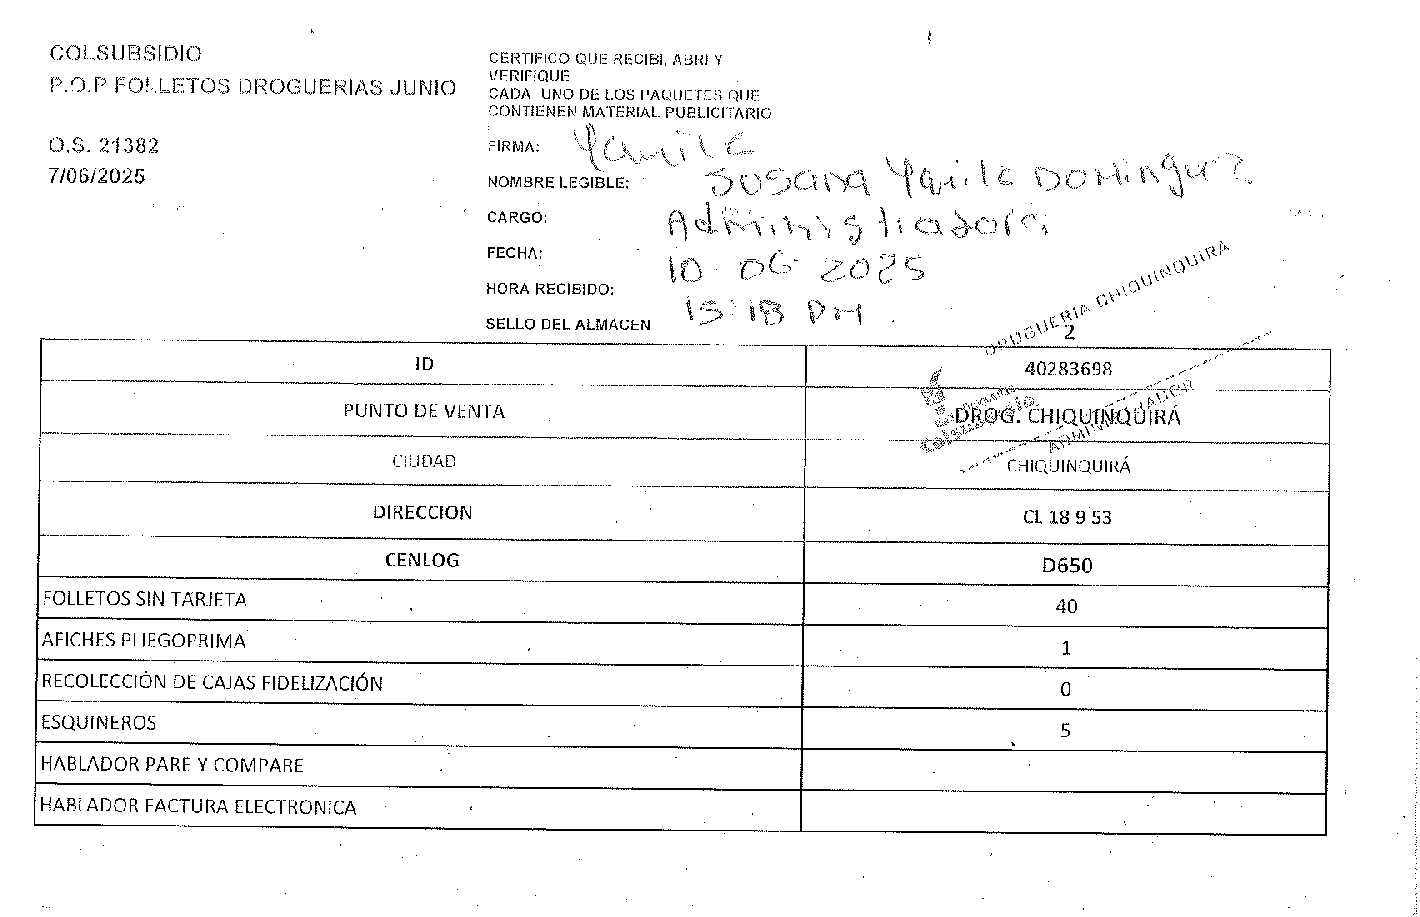 COLSUBSIDIO
P.O.P FOLLETOS DROGUERIAS JUNIO
O.S. 21382
7/06/2025
CERTIFICO QUE RECIBI, ABRI Y
VERIFIQUE
CADA UNO DE LOS PAQUETES QUE
CONTIENEN MATERIAL PUBLICITARIO
FIRMA: Yamile
NOMBRE LEGIBLE: Susana Yamile Dominguez
CARGO: Administradora
FECHA: 10 06 2025
HORA RECIBIDO: 15:18 PM
SELLO DEL ALMACEN
DROGUERIA CHIQUINQUIRA
2
ID 40283698
Colsubsidio
ADMINISTRADOR
PUNTO DE VENTA DROG. CHIQUINQUIRÁ
CIUDAD CHIQUINQUIRÁ
DIRECCION CL 18 9 53
CENLOG D650
FOLLETOS SIN TARJETA 40
AFICHES PLIEGOPRIMA 1
RECOLECCIÓN DE CAJAS FIDELIZACIÓN 0
ESQUINEROS 5
HABLADOR PARE Y COMPARE
HABLADOR FACTURA ELECTRONICA